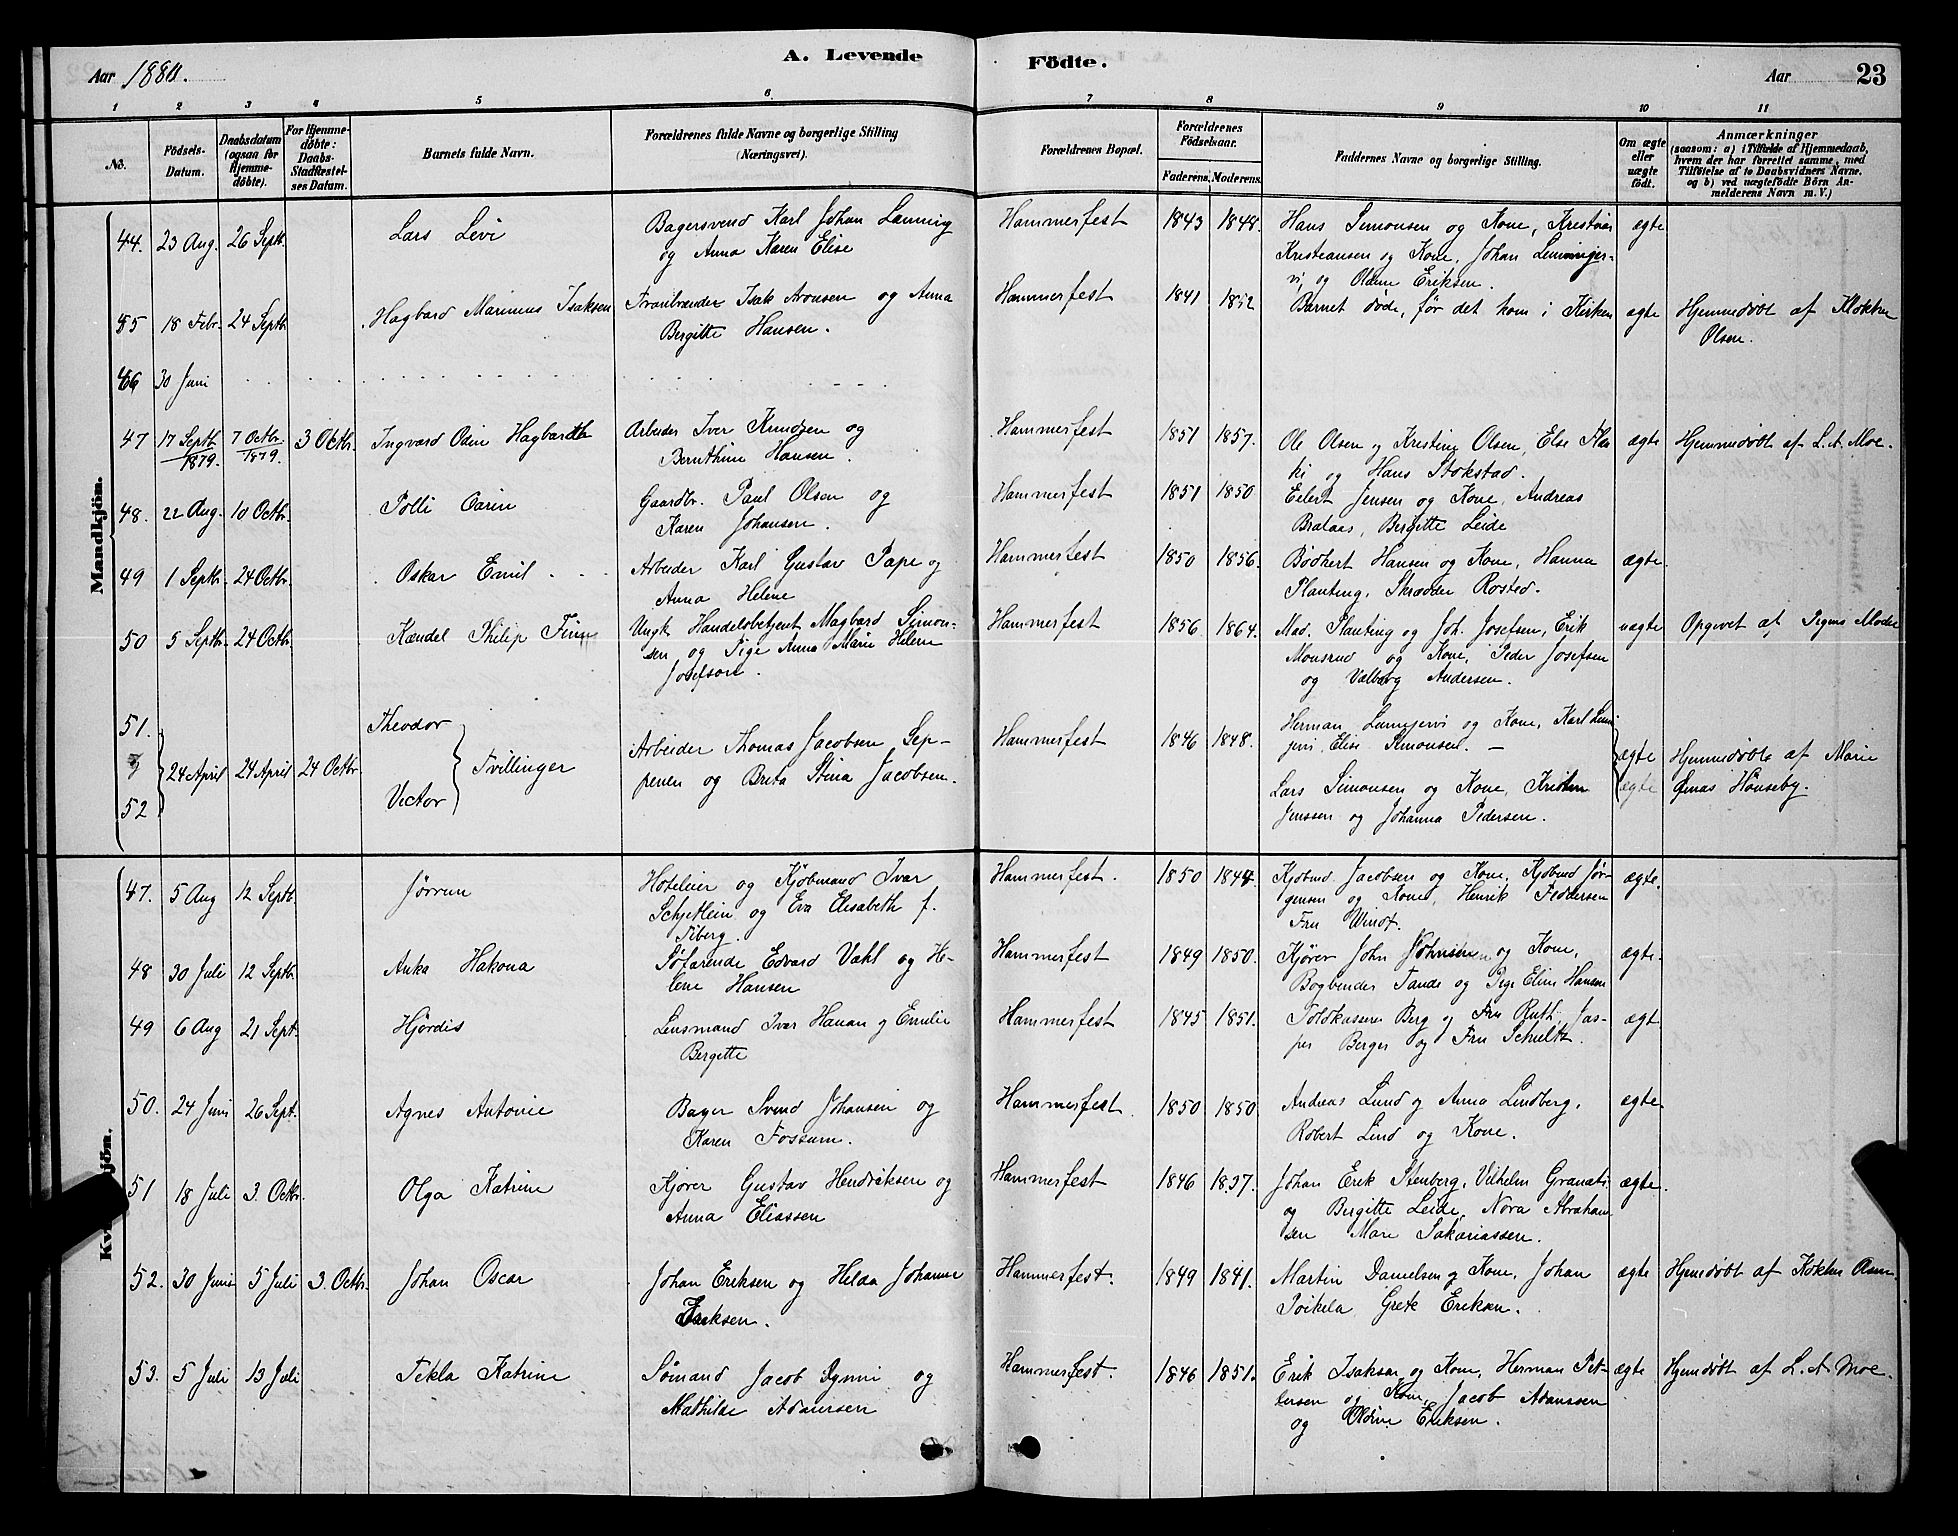 A. Levende Födte.
Aar 1880.
Aar 23
1 2 3 4 5 6 7 8 9 10 11
No.
Födsels-Datum.
Daabsdatum (ogsaa for Hjemme-döbte).
For Hjemme-döbte: Daabs-Stadfæstel-ses Datum.
Barnets fulde Navn.
Forældrenes fulde Navne og borgerlige Stilling (Næringsvei).
Forældrenes Bopæl.
Forældrenes Födselsaar.
Faderens. Moderens.
Faddernes Navne og borgerlige Stilling.
Om ægte eller uægte födt.
Anmærkninger
(saasom: a) i Tilfælde af Hjemmedaab, hvem der har forrettet samme, med Tilföielse af to Daabsvidners Navne. og b) ved uægtefödte Börn An-melderens Navn m. V.)
Mandkjön.
44. 23 Aug. 26 Septb. Lars Levi Bagersvend Karl Johan Lanning Hammerfest 1843 1848. Hans Simonsen og Kone, Kristian ægte
og Anna Karen Elise Kristiansen og Kone, Johan
og Oldine Eriksen.
45 18 Febr. 24 Septb. Hagbard Marinus Isaksen Tranbrænder Isak Aronsen og Anna Hammerfest 1841 1852 Barnet døde, før det kom i Kirken ægte Hjemmedøbt af Klokker
Bergitte Hansen. Olsen.
46 30 Juni
47 17 Septb. 1879. 7 Octbr. 1879. 3 Octbr. Ingvard Odin Hagbarth Arbeider Iver Knudsen og Hammerfest 1851 1857. Ole Olsen og Kristine Olsen, Else ægte Hjemmedøbt af L. A. Moe.
Bernthine Hansen. og Hans Stokstad.
48. 22 Aug. 10 Octbr. Polli Carin Gaardbr. Paul Olsen og Hammerfest 1851 1850 Eilert Jensen og Kone, Andreas
Karen Johansen. Brataas, Bergitte Leide
49 1 Septbr. 24 Octbr. Oskar Emil Arbeider Karl Gustav Pape og Hammerfest 1850 1856. Bødkert Hansen og Kone, Hanna ægte.
Anna Helene Planting, Skrædder Rosted.
50 5 Septbr. 24 Octbr. Kændel Philip Finn Ungk. Handelsbetjent Magbard Simon- Hammerfest 1856 1864. Mad. Planting og Joh. Josefsen, Erik uægte Opgivet af Pigens Moder
sen og Pige Anna Marie Helene Monsrud og Kone, Peder Josefsen
Josefsen. og Valborg Andersen.
51. Theodor Herman og Kone, Karl
& 24 April 24 April 24 Octbr. Tvillinger Arbeider Thomas Jacobsen Sep- Hammerfest 1846 1848. Elise Simonsen. ægte Hjemmedøbt af Marie
52 Victor penen og Brita Stina Jacobsen. Lars Simonsen og Kone, Kristen ægte Hönseby.
Jenssen og Johanna Pedersen.
47. 5 Aug 12 Septb. Jørrun Hoteleier og Kjøbmand Ivar Hammerfest. 1850 1844. Kjøbmd Jacobsen og Kone, Kjøbmd Jør- ægte.
Schjetlein og Eva Elisabeth f. gensen og Kone, Henrik Feddersen
Fiberg. Fru Windt.
48 30 Juli 12 Septb. Anka Hakona Søfarende Edvard Vahl og He- Hammerfest 1849 1850. Kjører John Johnsen og Kone, ægte.
lene Hansen Bogbinder Tande og Pige Eline Hansen
49 6 Aug 21 Sept. Hjördis Lensmand Ivar Hanan og Emilie Hammerfest 1845 1851. Toldkasserer Berg og Fru Ruth, Jas- ægt
Bergitte per Berger og Fru Schultz.
50. 24 Juni 26 Sept. Agnes Antonie Bager Svend Johansen og Hammerfest. 1850 1850. Andreas Lund og Anna Lindberg, ægte.
Karen Fossum. Robert Lind og Kone.
51 18 Juli 3. Octbr. Olga Katrine Kjører Gustav Hendriksen og Hammerfest 1846 1837. Johan Erik Stenberg, Vilhelm ægte.
Anna Eliassen og Bergitte Leide, Nora Abraham
sen Mari Sakariassen.
52. 30 Juni 5 Juli 3. Octbr. Johan Oscar Johan Eriksen og Helda Johanne Hammerfest. 1849 1841. Martin Danielsen og Kone, Johan ægte Hjemdøbt af
Eriksen. Poikela Grete Eriksen.
53. 5 Juli 13 Juli Tekla Katrine Sømand Jacob og Hammerfest. 1846 1851. Erik Isaksen og Kone, Herman Pet- ægte Hjemdøbt af L. A Moe.
Mathilde Adamsen tersen og Kone, Jacob Adamssen
og Oldine Eriksen.